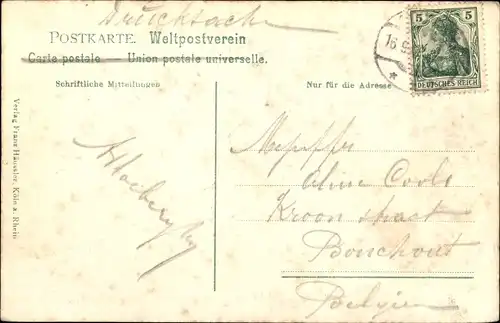 Drucksache
POSTKARTE. Weltpostverein
Carte postale Union postale universelle.
5 5
DEUTSCHES REICH
Schriftliche Mitteilungen
Nur für die Adresse
Verlag Franz Häussler, Köln a. Rhein
Aline Cools
Kroon straat
Bouchout
Belgien